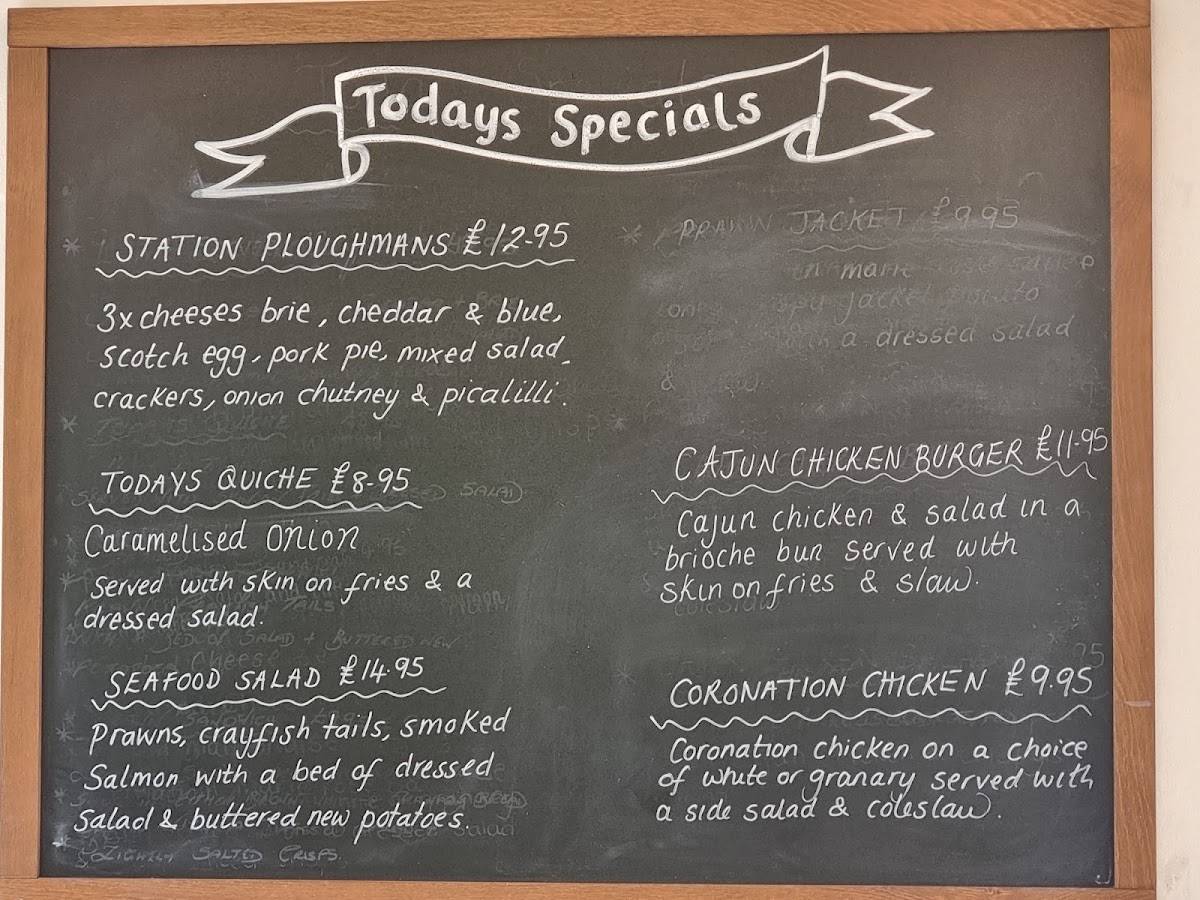 Todays Specials
STATION PLOUGHMANS £12-95
3x cheeses brie, cheddar & blue,
Scotch egg, pork pie, mixed salad,
crackers, onion chutney & picalilli.
TODAYS QUICHE £8-95
Caramelised Onion
Served with skin on fries & a
dressed salad.
SEAFOOD SALAD £14.95
Prawns, crayfish tails, smoked
Salmon with a bed of dressed
Salad & buttered new potatoes.
LIGHTLY SALTED CRISPS
PRAWN JACKET £9.95
in marie
jacket potato
with a dressed salad
&
CAJUN CHICKEN BURGER £11-95
Cajun chicken & salad in a
brioche bun served with
skin on fries & slaw.
CORONATION CHICKEN £9.95
Coronation chicken on a choice
of white or granary served with
a side salad & coleslaw.